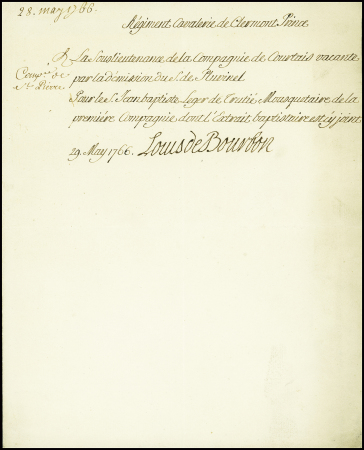 28. may 1766.
Régiment Cavalerie de Clermont Prince
A La Souslieutenance de la Compagnie de Courtais vacante
Comp.e de
St. Pierre.
par la démission du S. de
Pour le S. Jean baptiste Leger de Trutié Mousquetaire de la
première Compagnie, dont l'Extrait baptistaire est cy joint.
29. May 1766. Louis de Bourbon